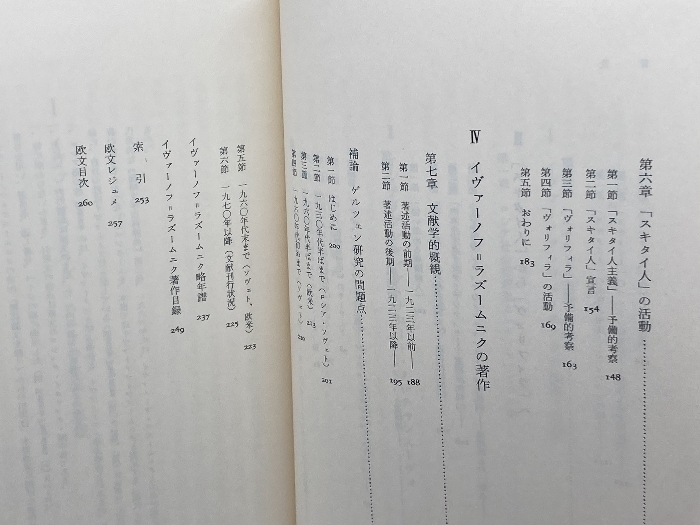 第六章 「スキタイ人」の活動
第一節 「スキタイ人主義」――予備的考察 148
第二節 「スキタイ人」宣言 154
第三節 「ヴォリフィラ」――予備的考察 163
第四節 「ヴォリフィラ」の活動 169
第五節 おわりに 183
Ⅳ イヴァーノフ=ラズームニクの著作
第七章 文献学的概観
第一節 著述活動の前期――一九二三年以前―― 188
第二節 著述活動の後期――一九二三年以降―― 195
補論 ゲルツェン研究の問題点
第一節 はじめに 200
第二節 一九三〇年代半ばまで〈ロシア・ソヴェト〉 201
第三節 一九六〇年代末まで〈欧米〉 213
第四節
第五節 一九六〇年代末まで〈ソヴェト、欧米〉 223
第六節 一九七〇年以降〔文献刊行状況〕 225
イヴァーノフ=ラズームニク略年譜 237
イヴァーノフ=ラズームニク著作目録 249
索引 253
欧文レジュメ 257
欧文目次 260